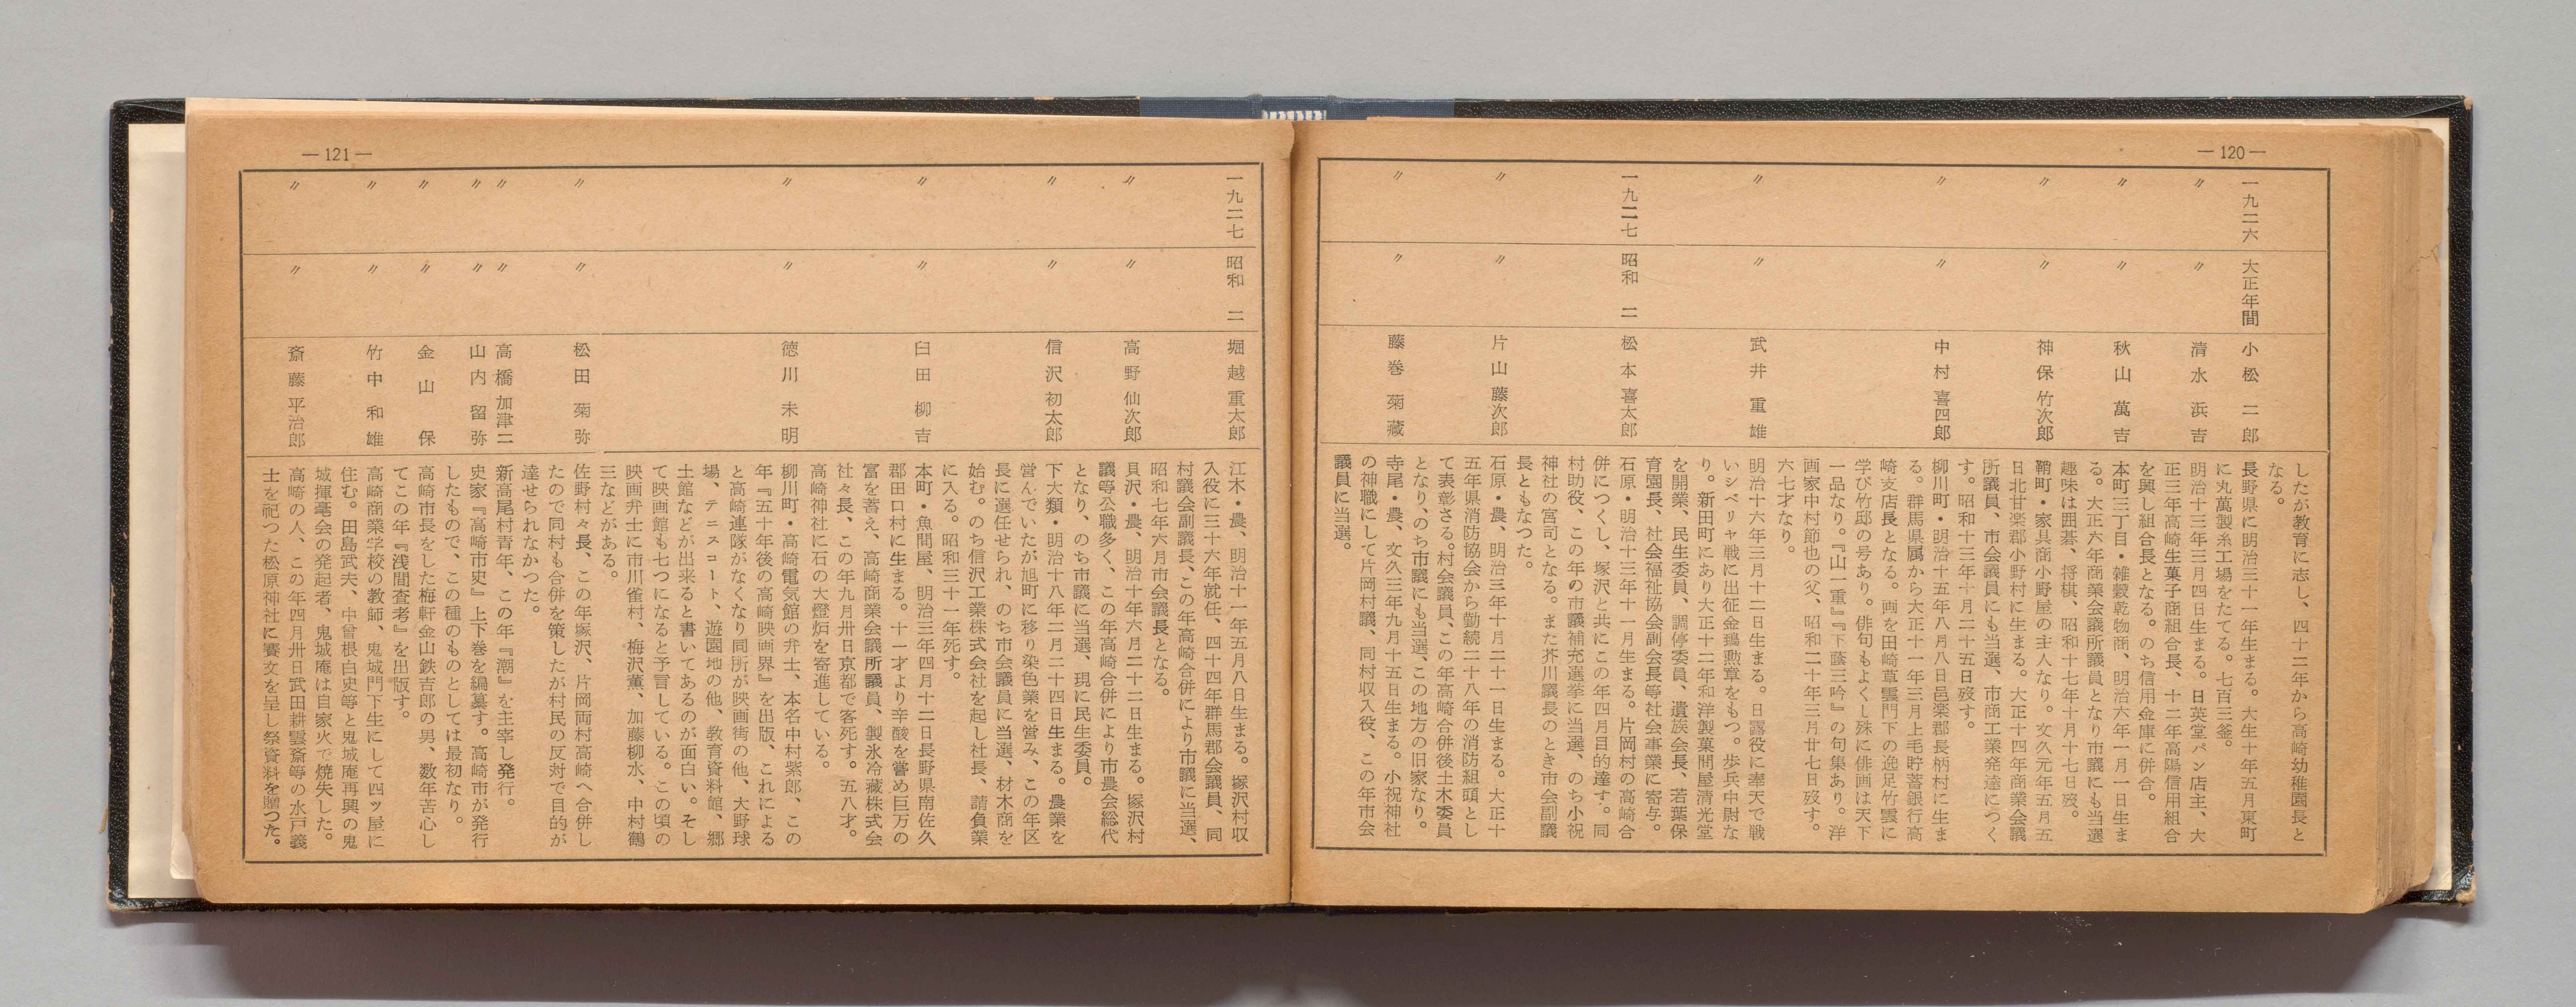 —120—
したが教育に志し、四十二年から高崎幼稚園長と
なる。
一九二六 大正年間 小松二郎 長野県に明治三十一年生まる。大生十年五月東町
に丸萬製糸工場をたてる。七百三釜。
〃 〃 清水浜吉 明治十三年三月四日生まる。日英堂パン店主、大
正三年高崎生菓子商組合長、十二年高陽信用組合
を興し組合長となる。のち信用金庫に併合。
〃 〃 秋山萬吉 本町三丁目・雑穀乾物商、明治六年一月一日生ま
る。大正六年商業会議所議員となり市議にも当選
趣味は囲碁、将棋、昭和十七年十月十七日歿。
〃 〃 神保竹次郎 鞘町・家具商小野屋の主人なり。文久元年五月五
日北甘楽郡小野村に生まる。大正十四年商業会議
所議員、市会議員にも当選、市商工業発達につく
す。昭和十三年十月二十五日歿す。
〃 〃 中村喜四郎 柳川町・明治十五年八月八日邑楽郡長柄村に生ま
る。群馬県属から大正十一年三月上毛貯蓄銀行高
崎支店長となる。画を田崎草雲門下の逸足竹雲に
学び竹邸の号あり。俳句もよくし殊に俳画は天下
一品なり。『山一重』『下蔭三吟』の句集あり。洋
画家中村節也の父、昭和二十年三月廿七日歿す。
六七才なり。
〃 〃 武井重雄 明治十六年三月十二日生まる。日露役に奉天で戦
いシベリヤ戦に出征金鵄勲章をもつ。歩兵中尉な
り。新田町にあり大正十二年和洋製菓問屋清光堂
を開業、民生委員、調停委員、遺族会長、若葉保
育園長、社会福祉協会副会長等社会事業に寄与。
一九二七 昭和二 松本喜太郎 石原・明治十三年十一月生まる。片岡村の高崎合
併につくし、塚沢と共にこの年四月目的達す。同
村助役、この年の市議補充選挙に当選、のち小祝
神社の宮司となる。また芥川議長のとき市会副議
長ともなつた。
〃 〃 片山藤次郎 石原・農、明治三年十月二十一日生まる。大正十
五年県消防協会から勤続二十八年の消防組頭とし
て表彰さる。村会議員、この年高崎合併後土木委員
となり、のち市議にも当選、この地方の旧家なり。
〃 〃 藤巻菊藏 寺尾・農、文久三年九月十五日生まる。小祝神社
の神職にして片岡村議、同村収入役、この年市会
議員に当選。
—121—
一九二七 昭和二 堀越重太郎 江木・農、明治十一年五月八日生まる。塚沢村収
入役に三十六年就任、四十四年群馬郡会議員、同
村議会副議長、この年高崎合併により市議に当選、
昭和七年六月市会議長となる。
〃 〃 高野仙次郎 貝沢・農、明治十年六月二十二日生まる。塚沢村
議等公職多く、この年高崎合併により市農会総代
となり、のち市議に当選、現に民生委員。
〃 〃 信沢初太郎 下大類・明治十八年二月二十四日生まる。農業を
営んでいたが旭町に移り染色業を営み、この年区
長に選任せられ、のち市会議員に当選、材木商を
始む。のち信沢工業株式会社を起し社長、請負業
に入る。昭和三十一年死す。
〃 〃 臼田柳吉 本町・魚問屋、明治三年四月十二日長野県南佐久
郡田口村に生まる。十一才より辛酸を嘗め巨万の
富を蓄え、高崎商業会議所議員、製氷冷藏株式会
社々長、この年九月卅日京都で客死す。五八才。
高崎神社に石の大燈炉を寄進している。
〃 〃 徳川未明 柳川町・高崎電気館の弁士、本名中村紫郎、この
年『五十年後の高崎映画界』を出版、これによる
と高崎連隊がなくなり同所が映画街の他、大野球
場、テニスコート、遊園地の他、教育資料館、郷
土館などが出来ると書いてあるのが面白い。そし
て映画館も七つになると予言している。この頃の
映画弁士に市川雀村、梅沢薫、加藤柳水、中村鶴
三などがある。
〃 〃 松田菊弥 佐野村々長、この年塚沢、片岡両村高崎へ合併し
たので同村も合併を策したが村民の反対で目的が
達せられなかつた。
〃 〃 高橋加津二 新高尾村青年、この年『潮』を主宰し発行。
〃 〃 山内留弥 史家『高崎市史』上下巻を編纂す。高崎市が発行
したもので、この種のものとしては最初なり。
〃 〃 金山保 高崎市長をした梅軒金山鉄吉郎の男、数年苦心し
てこの年『浅間査考』を出版す。
〃 〃 竹中和雄 高崎商業学校の教師、鬼城門下生にして四ツ屋に
住む。田島武夫、中曾根白史等と鬼城庵再興の鬼
城揮毫会の発起者、鬼城庵は自家火で焼失した。
〃 〃 斎藤平治郎 高崎の人、この年四月卅日武田耕雲斎等の水戸義
士を祀つた松原神社に賽文を呈し祭資料を贈つた。